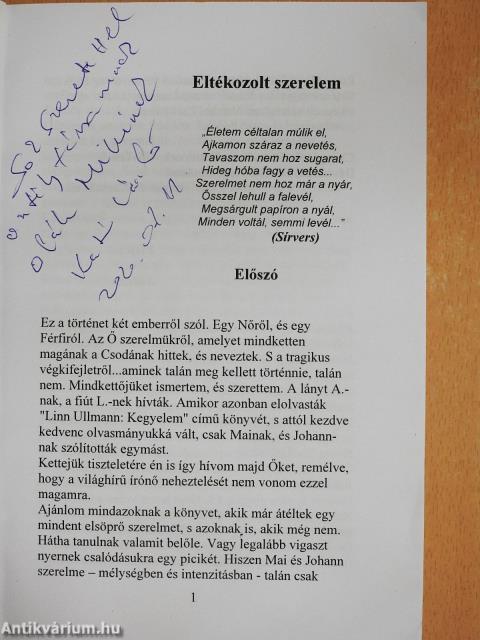 Sok szeretettel
osztálytársamnak
Oláh Mikinek
Kati László
2020. 07. 11
Eltékozolt szerelem
„Életem céltalan múlik el,
Ajkamon száraz a nevetés,
Tavaszom nem hoz sugarat,
Hideg hóba fagy a vetés...
Szerelmet nem hoz már a nyár,
Ősszel lehull a falevél,
Megsárgult papíron a nyál,
Minden voltál, semmi levél...”
(Sírvers)
Előszó
Ez a történet két emberről szól. Egy Nőről, és egy
Férfiról. Az Ő szerelmükről, amelyet mindketten
magának a Csodának hittek, és neveztek. S a tragikus
végkifejletről...aminek talán meg kellett történnie, talán
nem. Mindkettőjüket ismertem, és szerettem. A lányt A.-
nak, a fiút L.-nek hívták. Amikor azonban elolvasták
"Linn Ullmann: Kegyelem" című könyvét, s attól kezdve
kedvenc olvasmányukká vált, csak Mainak, és Johann-
nak szólították egymást.
Kettejük tiszteletére én is így hívom majd Őket, remélve,
hogy a világhírű írónő neheztelését nem vonom ezzel
magamra.
Ajánlom mindazoknak a könyvet, akik már átéltek egy
mindent elsöprő szerelmet, s azoknak is, akik még nem.
Hátha tanulnak valamit belőle. Vagy legalább vigaszt
nyernek csalódásukra egy picikét. Hiszen Mai és Johann
szerelme – mélységben és intenzitásban - talán csak
1
Antikvárium.hu